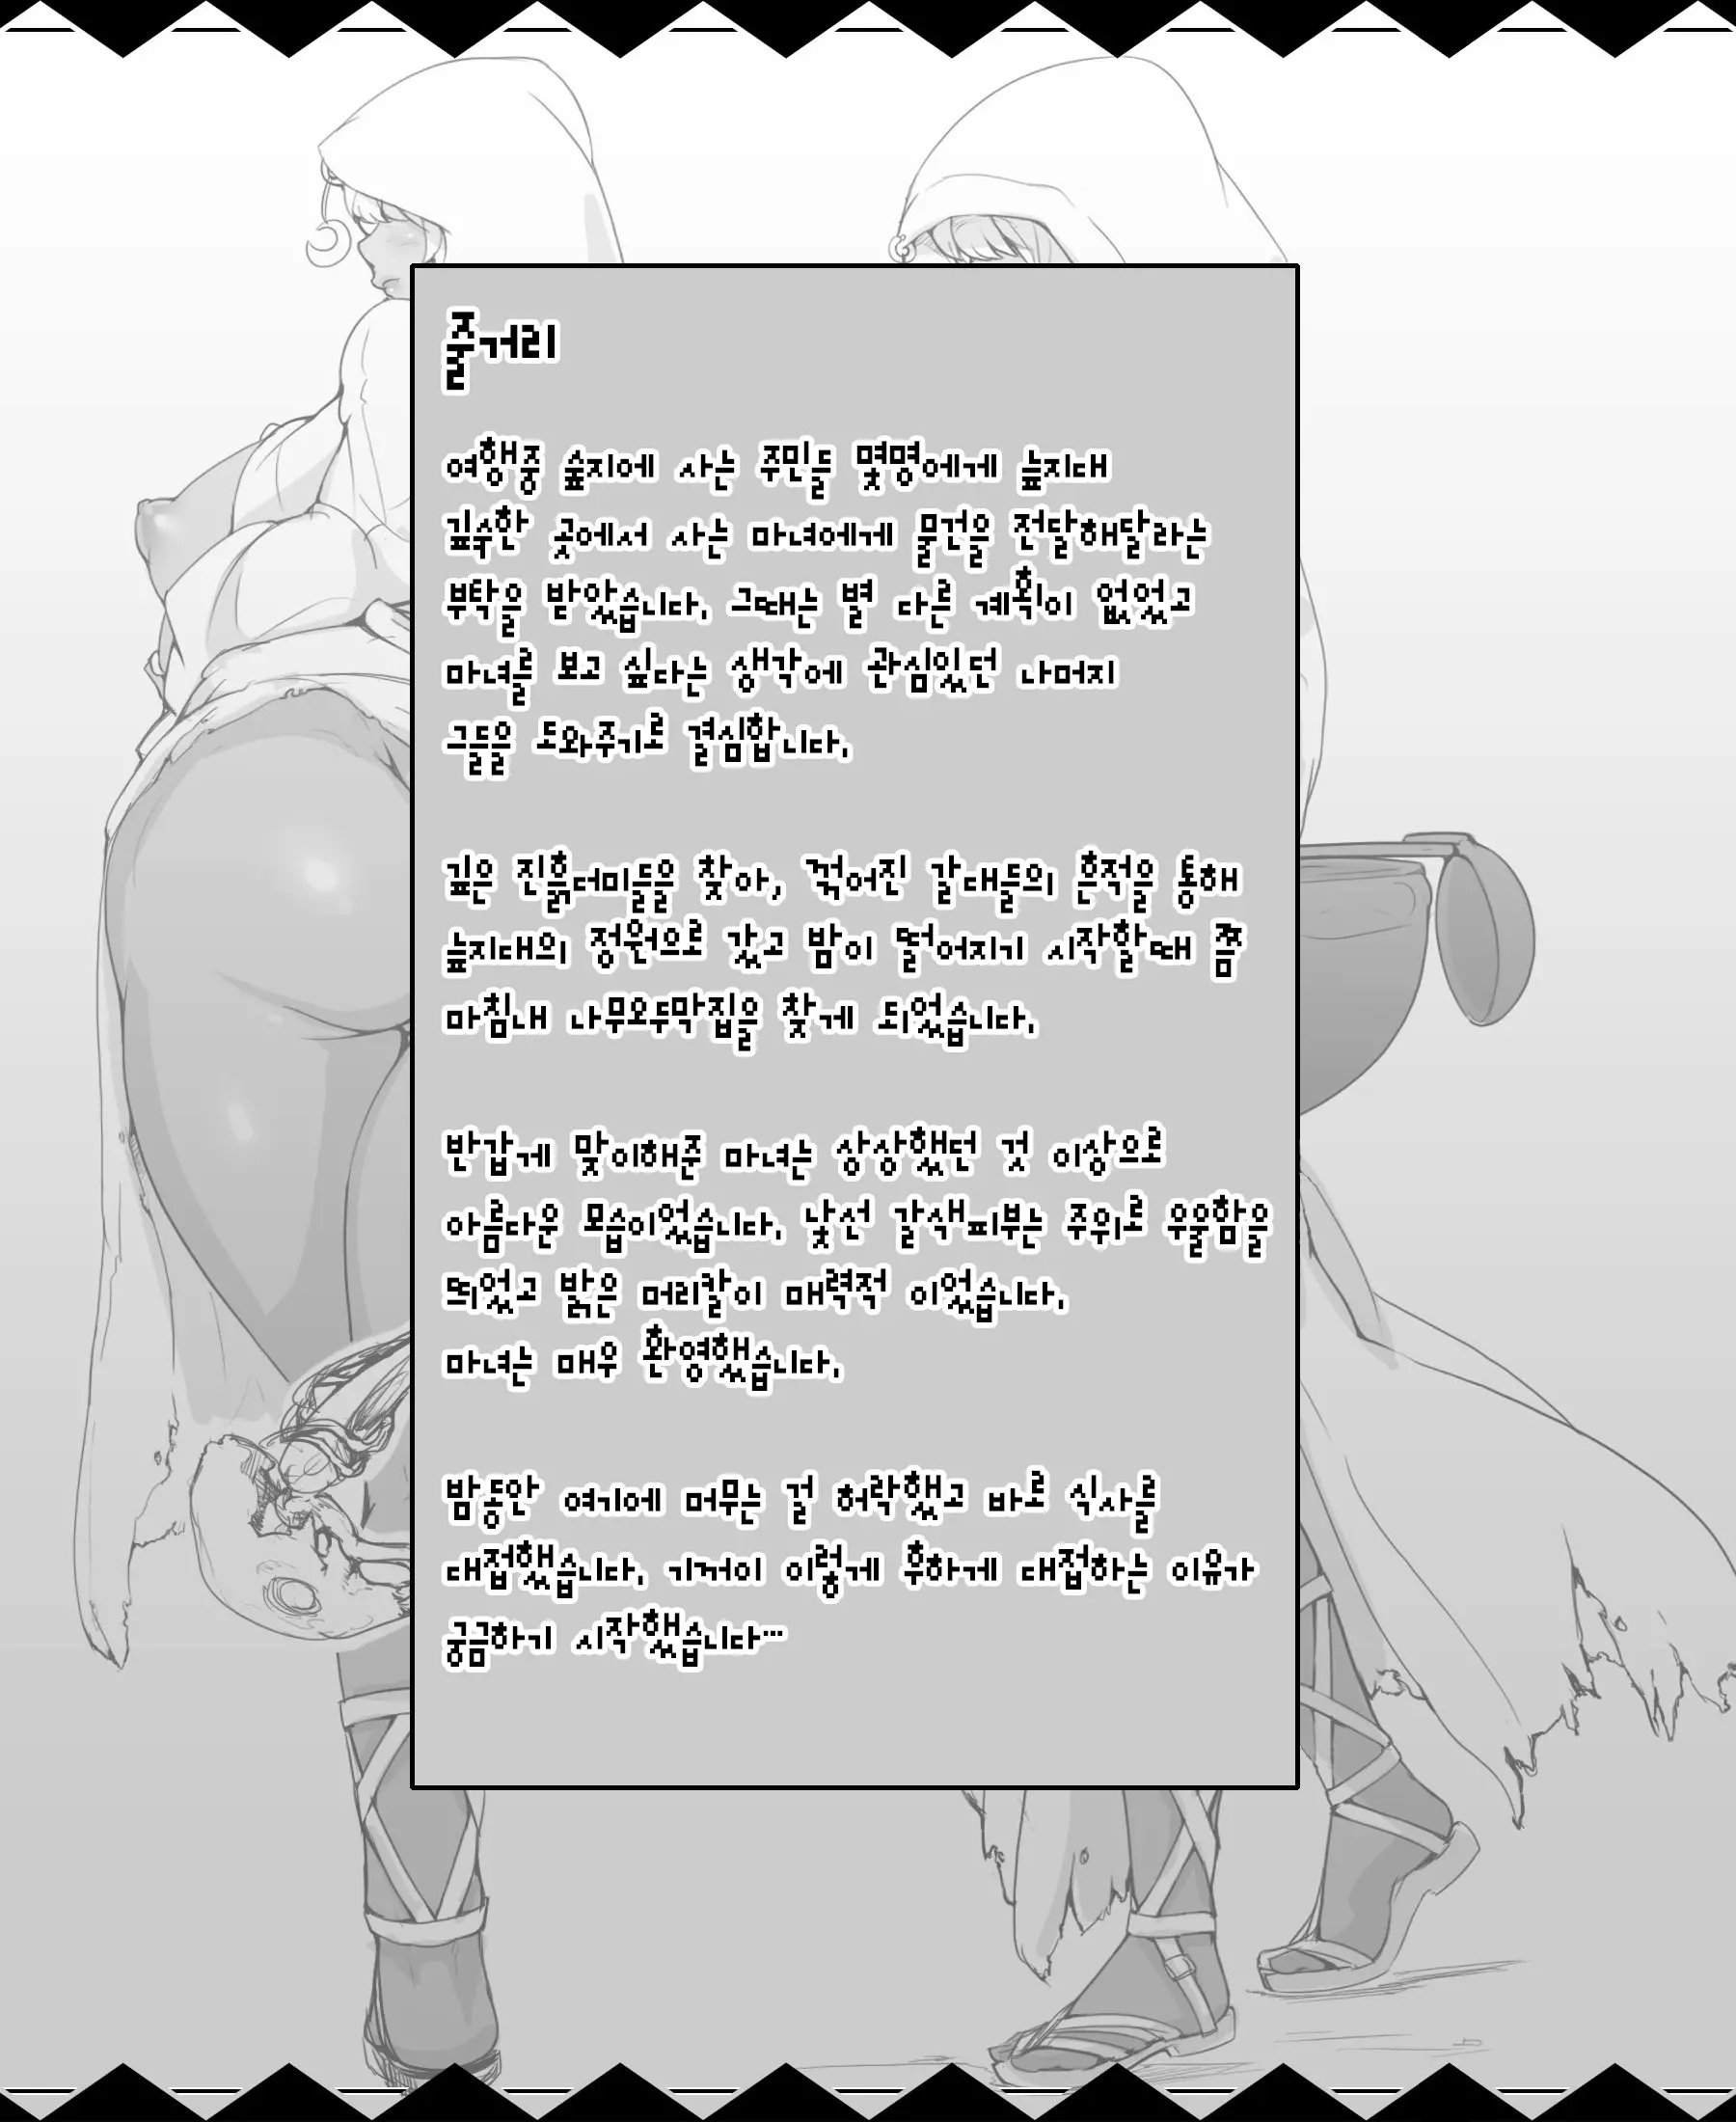 줄거리
여행중 숲지에 사는 주민들 몇명에게 늪지대
깊숙한 곳에서 사는 마녀에게 물건을 전달해달라는
부탁을 받았습니다. 그때는 별 다른 계획이 없었고
마녀를 보고 싶다는 생각에 관심있던 나머지
그들을 도와주기로 결심합니다.
깊은 진흙더미들을 찾아, 꺾어진 갈대들의 흔적을 통해
늪지대의 정원으로 갔고 밤이 떨어지기 시작할때 쯤
마침내 나무오두막집을 찾게 되었습니다.
반갑게 맞이해준 마녀는 상상했던 것 이상으로
아름다운 모습이었습니다. 낯선 갈색피부는 주위로 우울함을
띄었고 밝은 머리칼이 매력적 이었습니다.
마녀는 매우 환영했습니다.
밤동안 여기에 머무는 걸 허락했고 바로 식사를
대접했습니다. 기꺼이 이렇게 후하게 대접하는 이유가
궁금하기 시작했습니다…